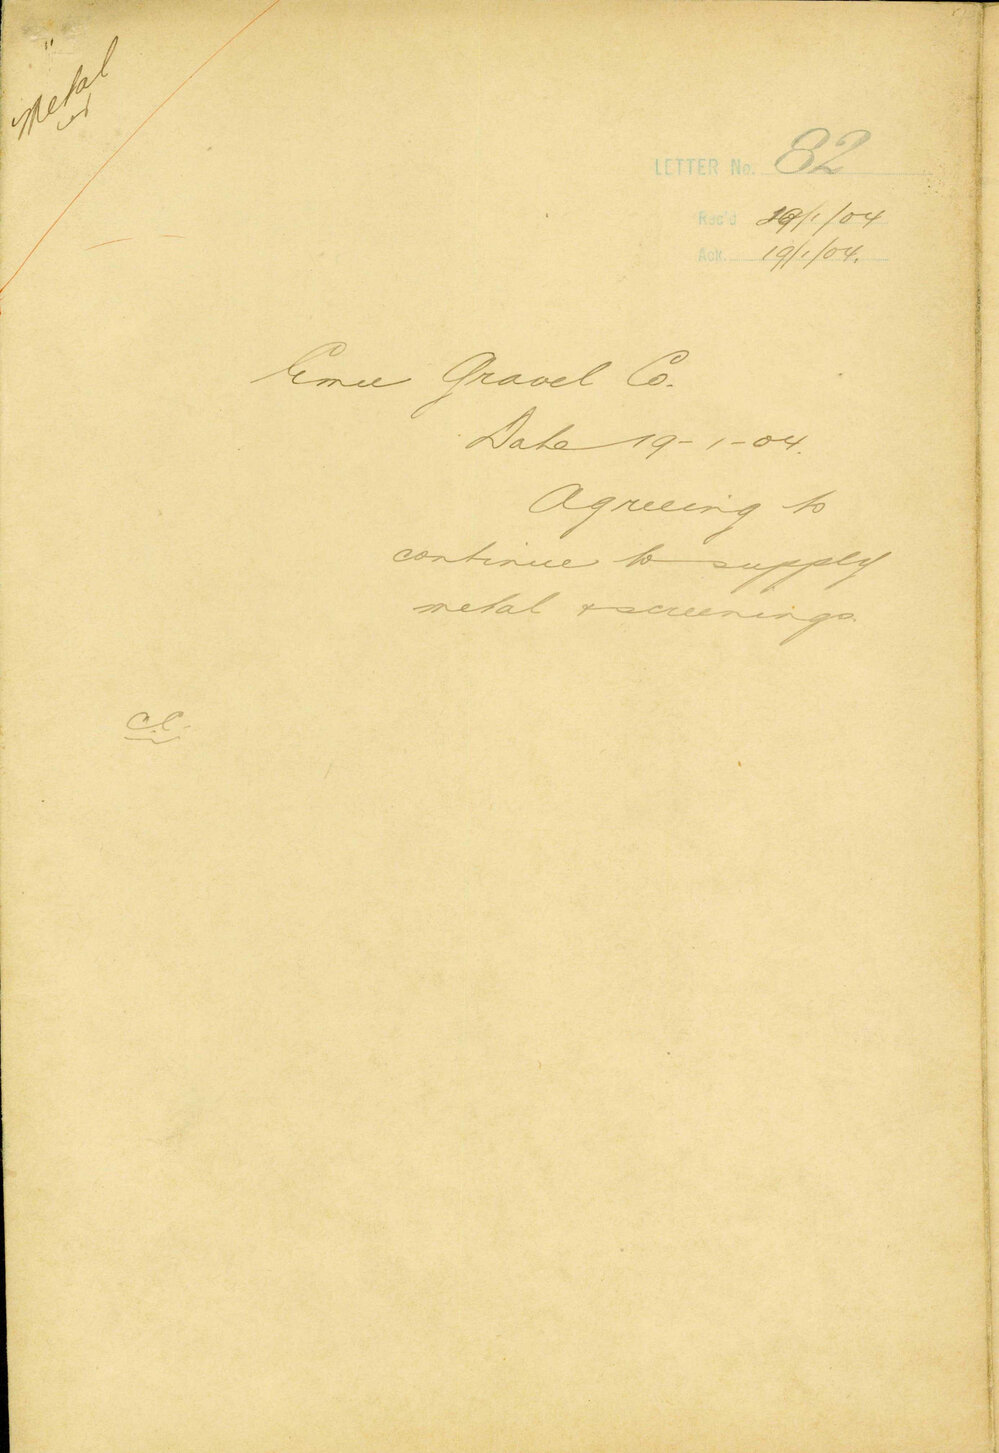 Metal
LETTER No. 82
Rec'd 19/1/04
Ack. 19/1/04.
Emu Gravel Co.
Date 19-1-04.
Agreeing to
continue to supply
metal & screenings.
C.C.